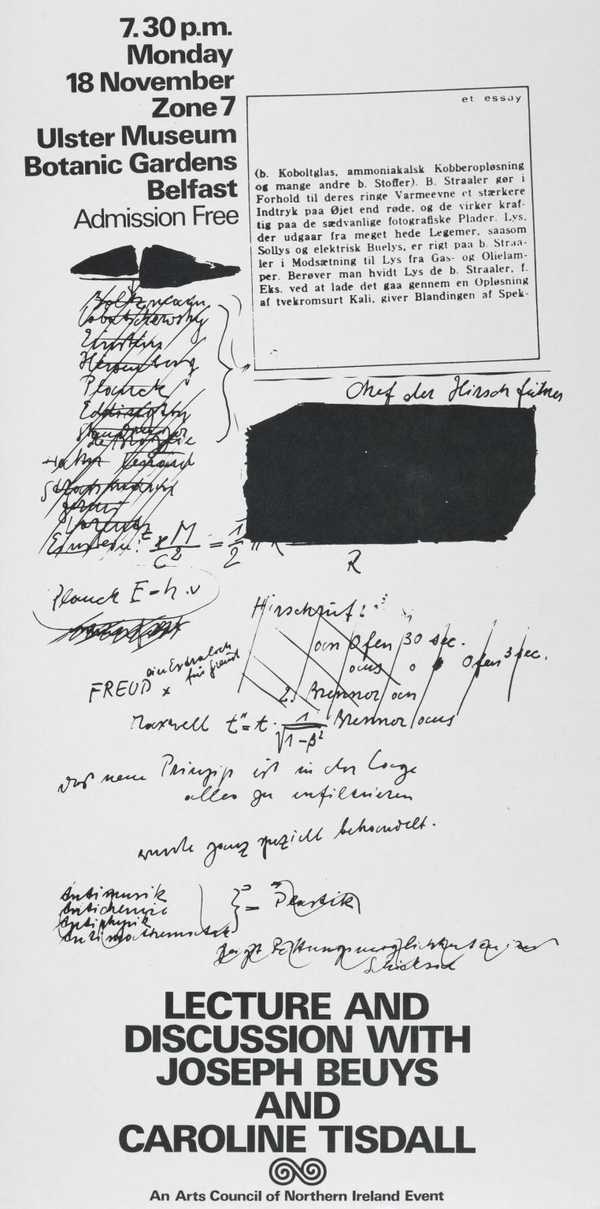 7.30 p.m.
Monday
18 November
Zone 7
Ulster Museum
Botanic Gardens
Belfast
Admission Free
et essay
(b. Koboltglas, ammoniakalsk Kobberopløsning
og mange andre b. Stoffer). B. Straaler gør i
Forhold til deres ringe Varmeevne et stærkere
Indtryk paa Øjet end røde, og de virker kraf-
tig paa de sædvanlige fotografiske Plader. Lys,
der udgaar fra meget hede Legemer, saasom
Sollys og elektrisk Buelys, er rigt paa b. Straa-
ler i Modsætning til Lys fra Gas- og Olielam-
per. Berøver man hvidt Lys de b. Straaler, f.
Eks. ved at lade det gaa gennem en Opløsning
af tvekromsurt Kali, giver Blandingen af Spek-
Chef der Hirschführer
Boltzmann
Lobatschewsky
Einstein
Heisenberg
Planck
Eddington
de Broglie
Einstein:
M
C²
=
1
2
R
Planck E=h.ν
Hirschruf:
an Ofen 30 sec.
aus Ofen 3 sec.
2. Brenner an
FREUD x
Maxwell t"=t · 1 Brenner aus
√1-β²
das neue Prinzip ist in der Lage
alles zu infiltrieren
wurde ganz speziell behandelt.
Antimusik
Antichemie
Antiphysik
Antimathematik
= Plastik
Schicksal
LECTURE AND
DISCUSSION WITH
JOSEPH BEUYS
AND
CAROLINE TISDALL
An Arts Council of Northern Ireland Event